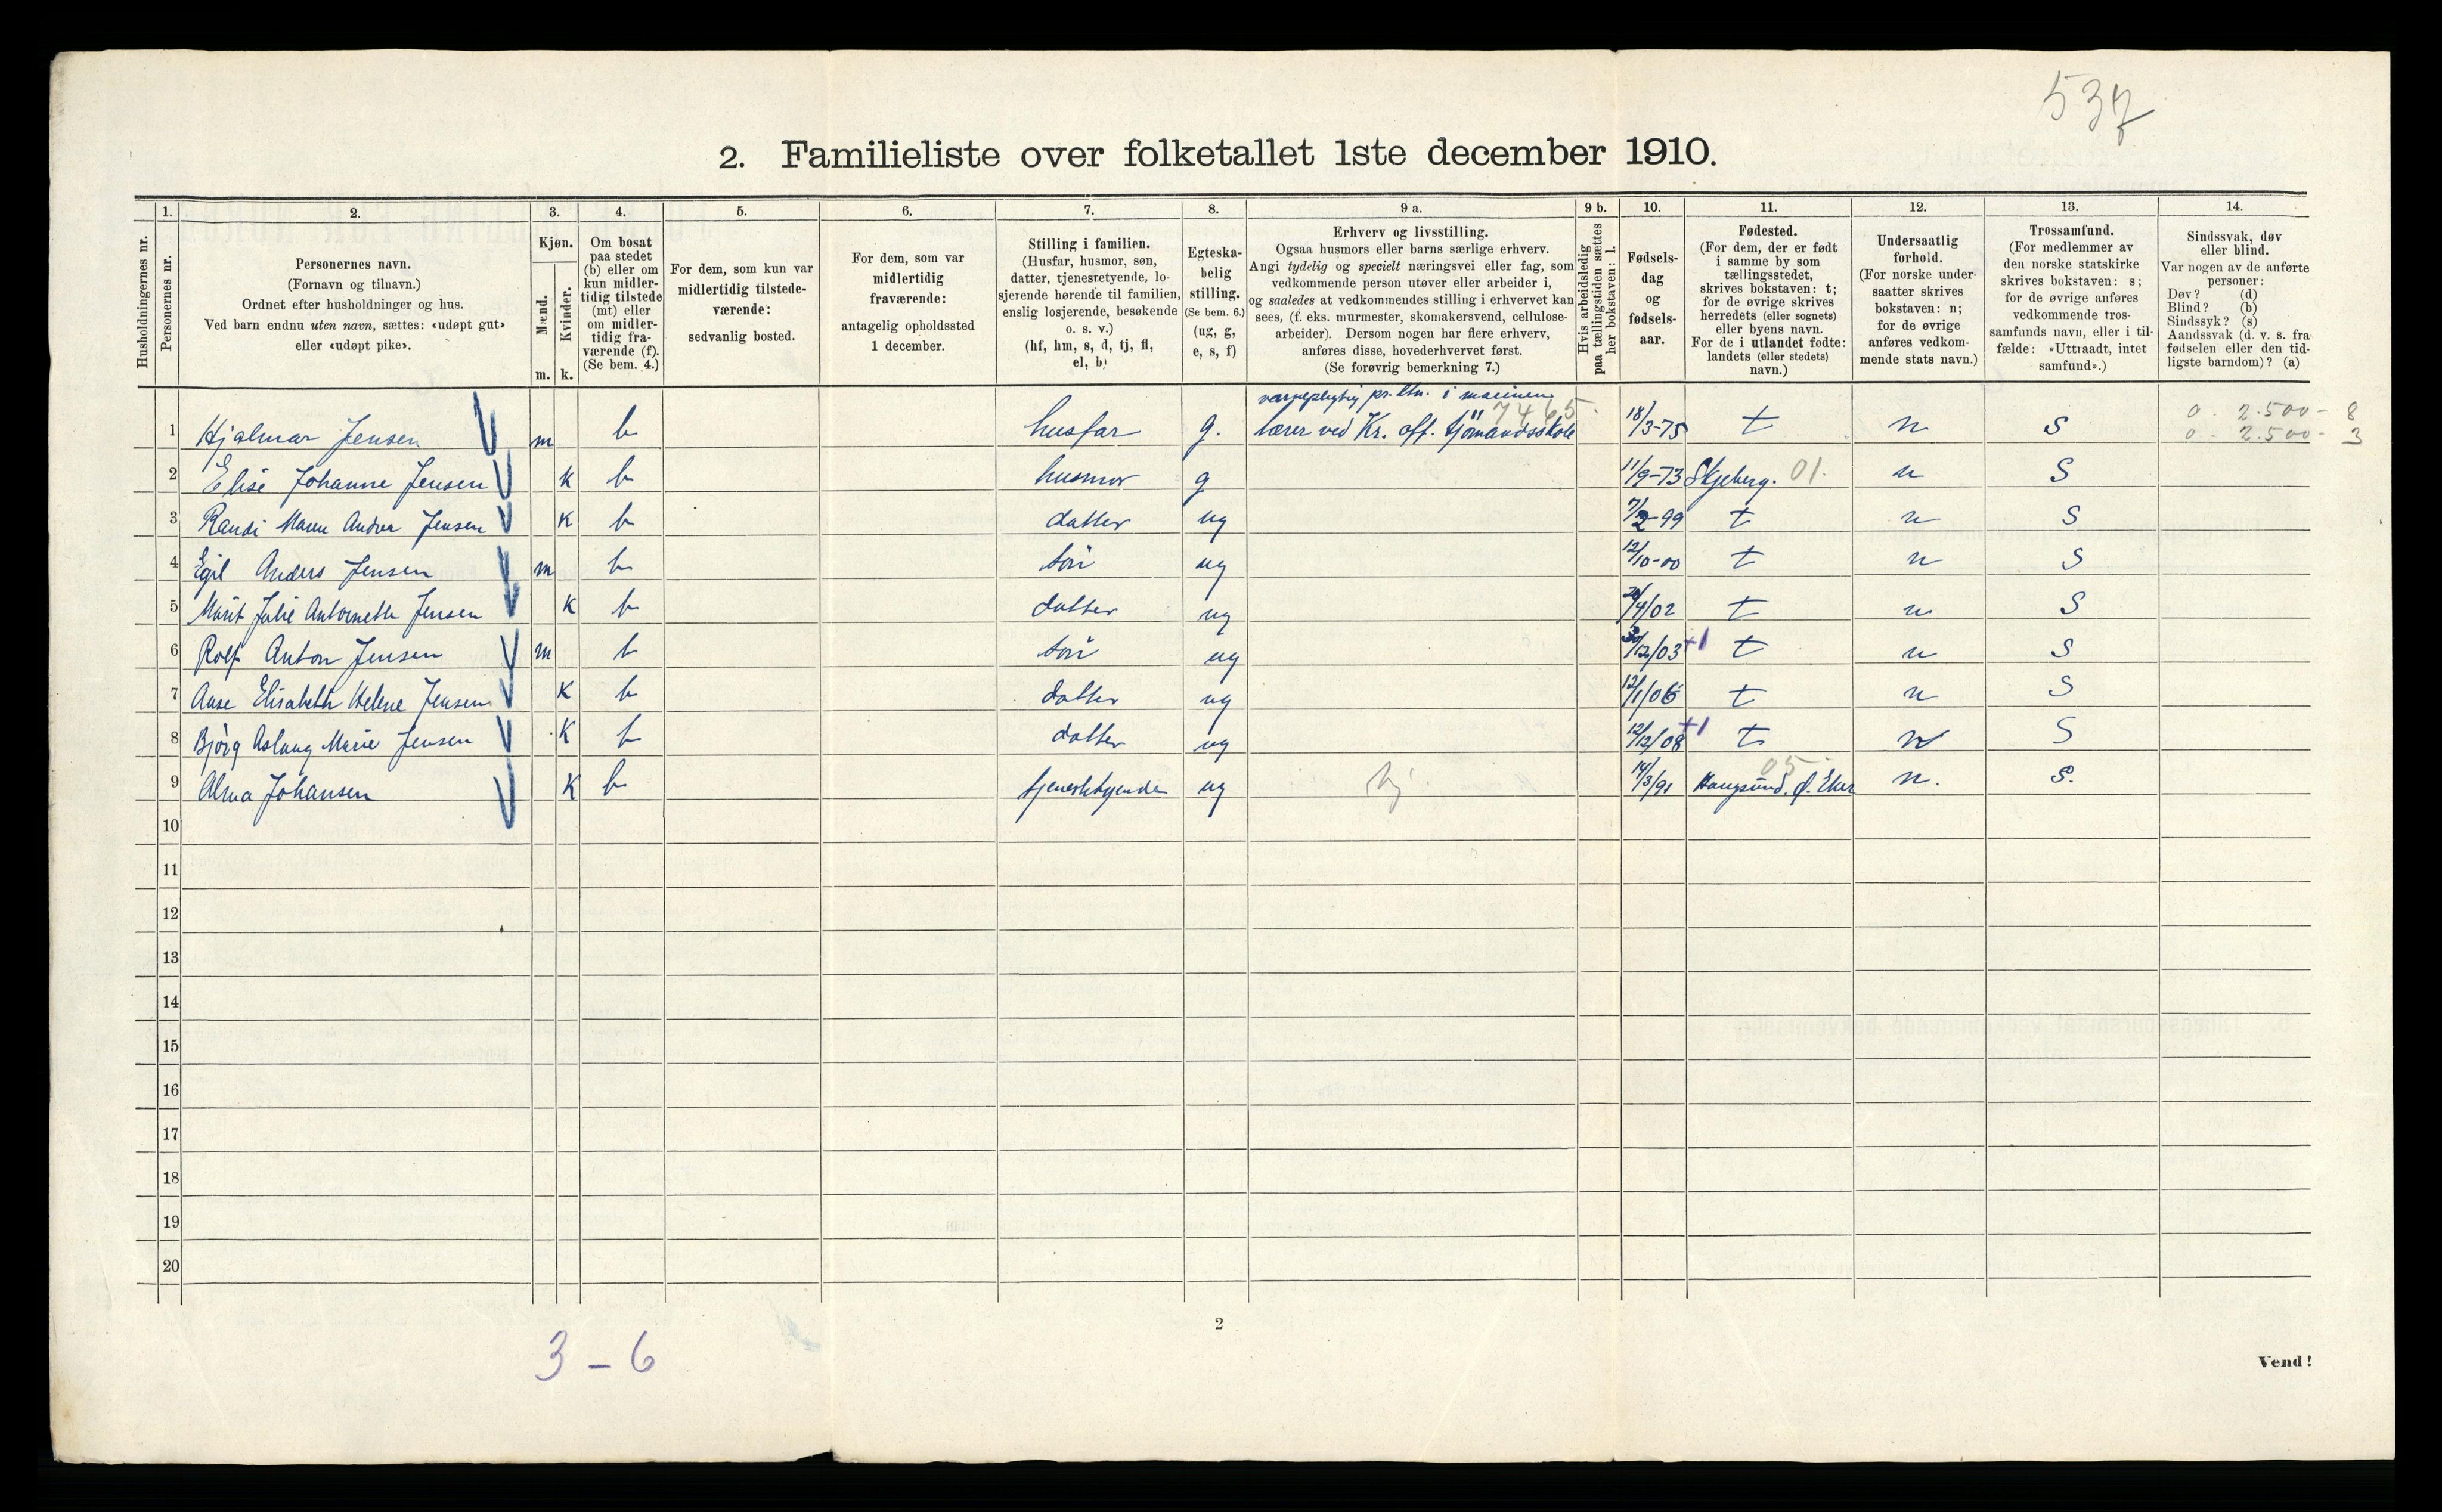 537
2. Familieliste over folketallet 1ste december 1910.
Husholdningernes nr.
1.
Personernes nr.
2.
Personernes navn.
(Fornavn og tilnavn.)
Ordnet efter husholdninger og hus.
Ved barn endnu uten navn, sættes: «udøpt gut»
eller «udøpt pike».
3.
Kjøn.
Mænd.
Kvinder.
m. k.
4.
Om bosat
paa stedet
(b) eller om
kun midler-
tidig tilstede
(mt) eller
om midler-
tidig fra-
værende (f).
(Se bem. 4.)
5.
For dem, som kun var
midlertidig tilstede-
værende:
sedvanlig bosted.
6.
For dem, som var
midlertidig
fraværende:
antagelig opholdssted
1 december.
7.
Stilling i familien.
(Husfar, husmor, søn,
datter, tjenestetyende, lo-
sjerende hørende til familien,
enslig losjerende, besøkende
o. s. v.)
(hf, hm, s, d, tj, fl,
el, b)
8.
Egteska-
belig
stilling.
(Se bem. 6.)
(ug, g,
e, s, f)
9 a.
Erhverv og livsstilling.
Ogsaa husmors eller barns særlige erhverv.
Angi tydelig og specielt næringsvei eller fag, som
vedkommende person utøver eller arbeider i,
og saaledes at vedkommendes stilling i erhvervet kan
sees, (f. eks. murmester, skomakersvend, cellulose-
arbeider). Dersom nogen har flere erhverv,
anføres disse, hovederhvervet først.
(Se forøvrig bemerkning 7.)
9 b.
Hvis arbeidsledig
paa tællingstiden sættes
her bokstaven: l.
10.
Fødsels-
dag
og
fødsels-
aar.
11.
Fødested.
(For dem, der er født
i samme by som
tællingsstedet,
skrives bokstaven: t;
for de øvrige skrives
herredets (eller sognets)
eller byens navn.
For de i utlandet fødte:
landets (eller stedets)
navn.)
12.
Undersaatlig
forhold.
(For norske under-
saatter skrives
bokstaven: n;
for de øvrige
anføres vedkom-
mende stats navn.)
13.
Trossamfund.
(For medlemmer av
den norske statskirke
skrives bokstaven: s;
for de øvrige anføres
vedkommende tros-
samfunds navn, eller i til-
fælde: «Uttraadt, intet
samfund».)
14.
Sindssvak, døv
eller blind.
Var nogen av de anførte
personer:
Døv? (d)
Blind? (b)
Sindssyk? (s)
Aandssvak (d. v. s. fra
fødselen eller den tid-
ligste barndom)? (a)
varnepligtig pr. ltn. i marinen 7465. 0. 2.500 - 8
1 Hjalmar Jensen m b husfar g. lærer ved Kr. off. sjömandsskole 18/3-75 t n s 0. 2.500 - 3
2 Elise Johanne Jensen k b husmor g 11/9-73 Skjeberg. 01. n S
3 Randi Maren Andrea Jensen k b datter ug 7/2-99 t n S
4 Egil Anders Jensen m b sön ug 12/10-00 t n S
5 Marit Julie Antoinette Jensen k b datter ug /4/02 t n S
6 Rolf Anton Jensen m b sön ug /12/03 +1 t n S
7 Aase Elisabeth Helene Jensen k b datter ug 12/1/06 t n S
8 Bjørg Aslaug Marie Jensen k b datter ug 12/12/08 +1 t n S
9 Alma Johansen k b tjenestetyende ug hj. 14/3/91 Haugsund. Ø. Eker 05 n. S.
10
11
12
13
14
15
16
17
18
19
20
2
3 - 6
Vend!